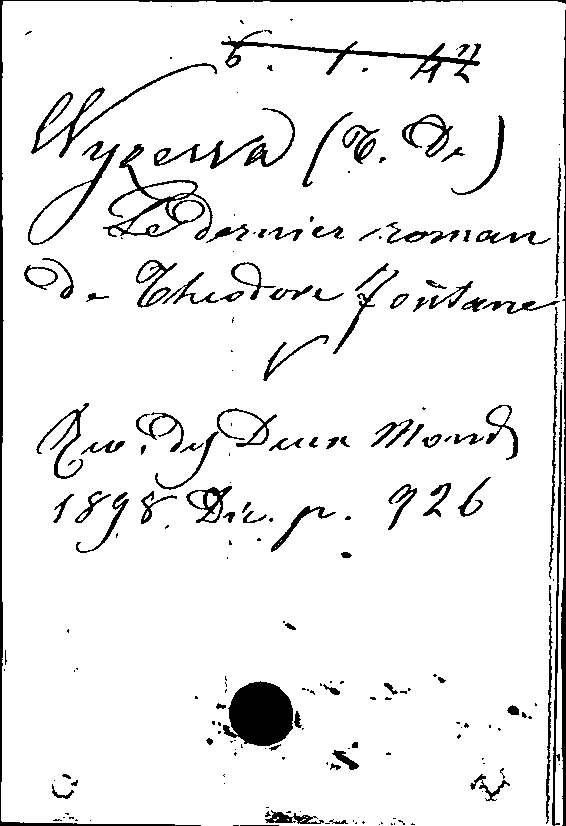 6. 1. 42
Wyzewa (T. De)
Le dernier roman
de Théodore Fontane
V
Rev. des Deux Monds
1898 Déc. p. 926